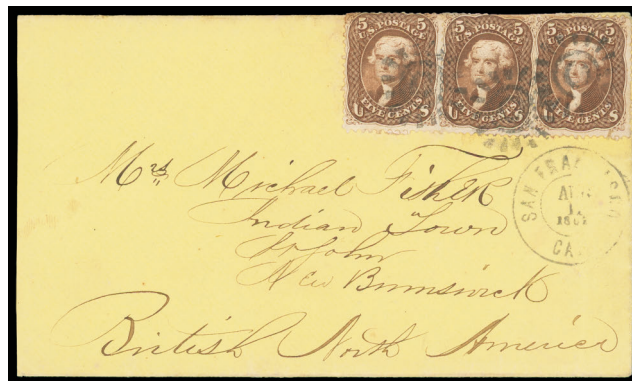 5 U.S. POSTAGE 5
U FIVE CENTS S
5 U.S. POSTAGE 5
U FIVE CENTS S
5 U.S. POSTAGE 5
U FIVE CENTS S
SAN FRANCISCO
CAL
Mrs Michael Fisher
Indian Town
St John
New Brunswick
British North America